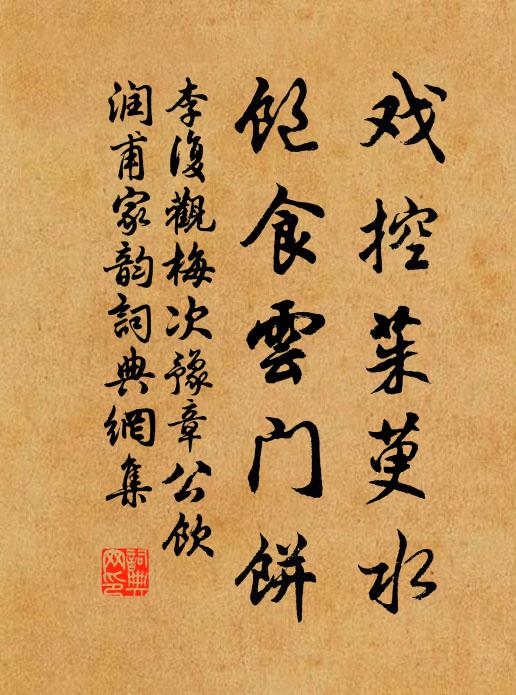 戏控茱萸水
飽食雲門餅
李復觀梅次豫章公飲
润甫家韵詞典網集